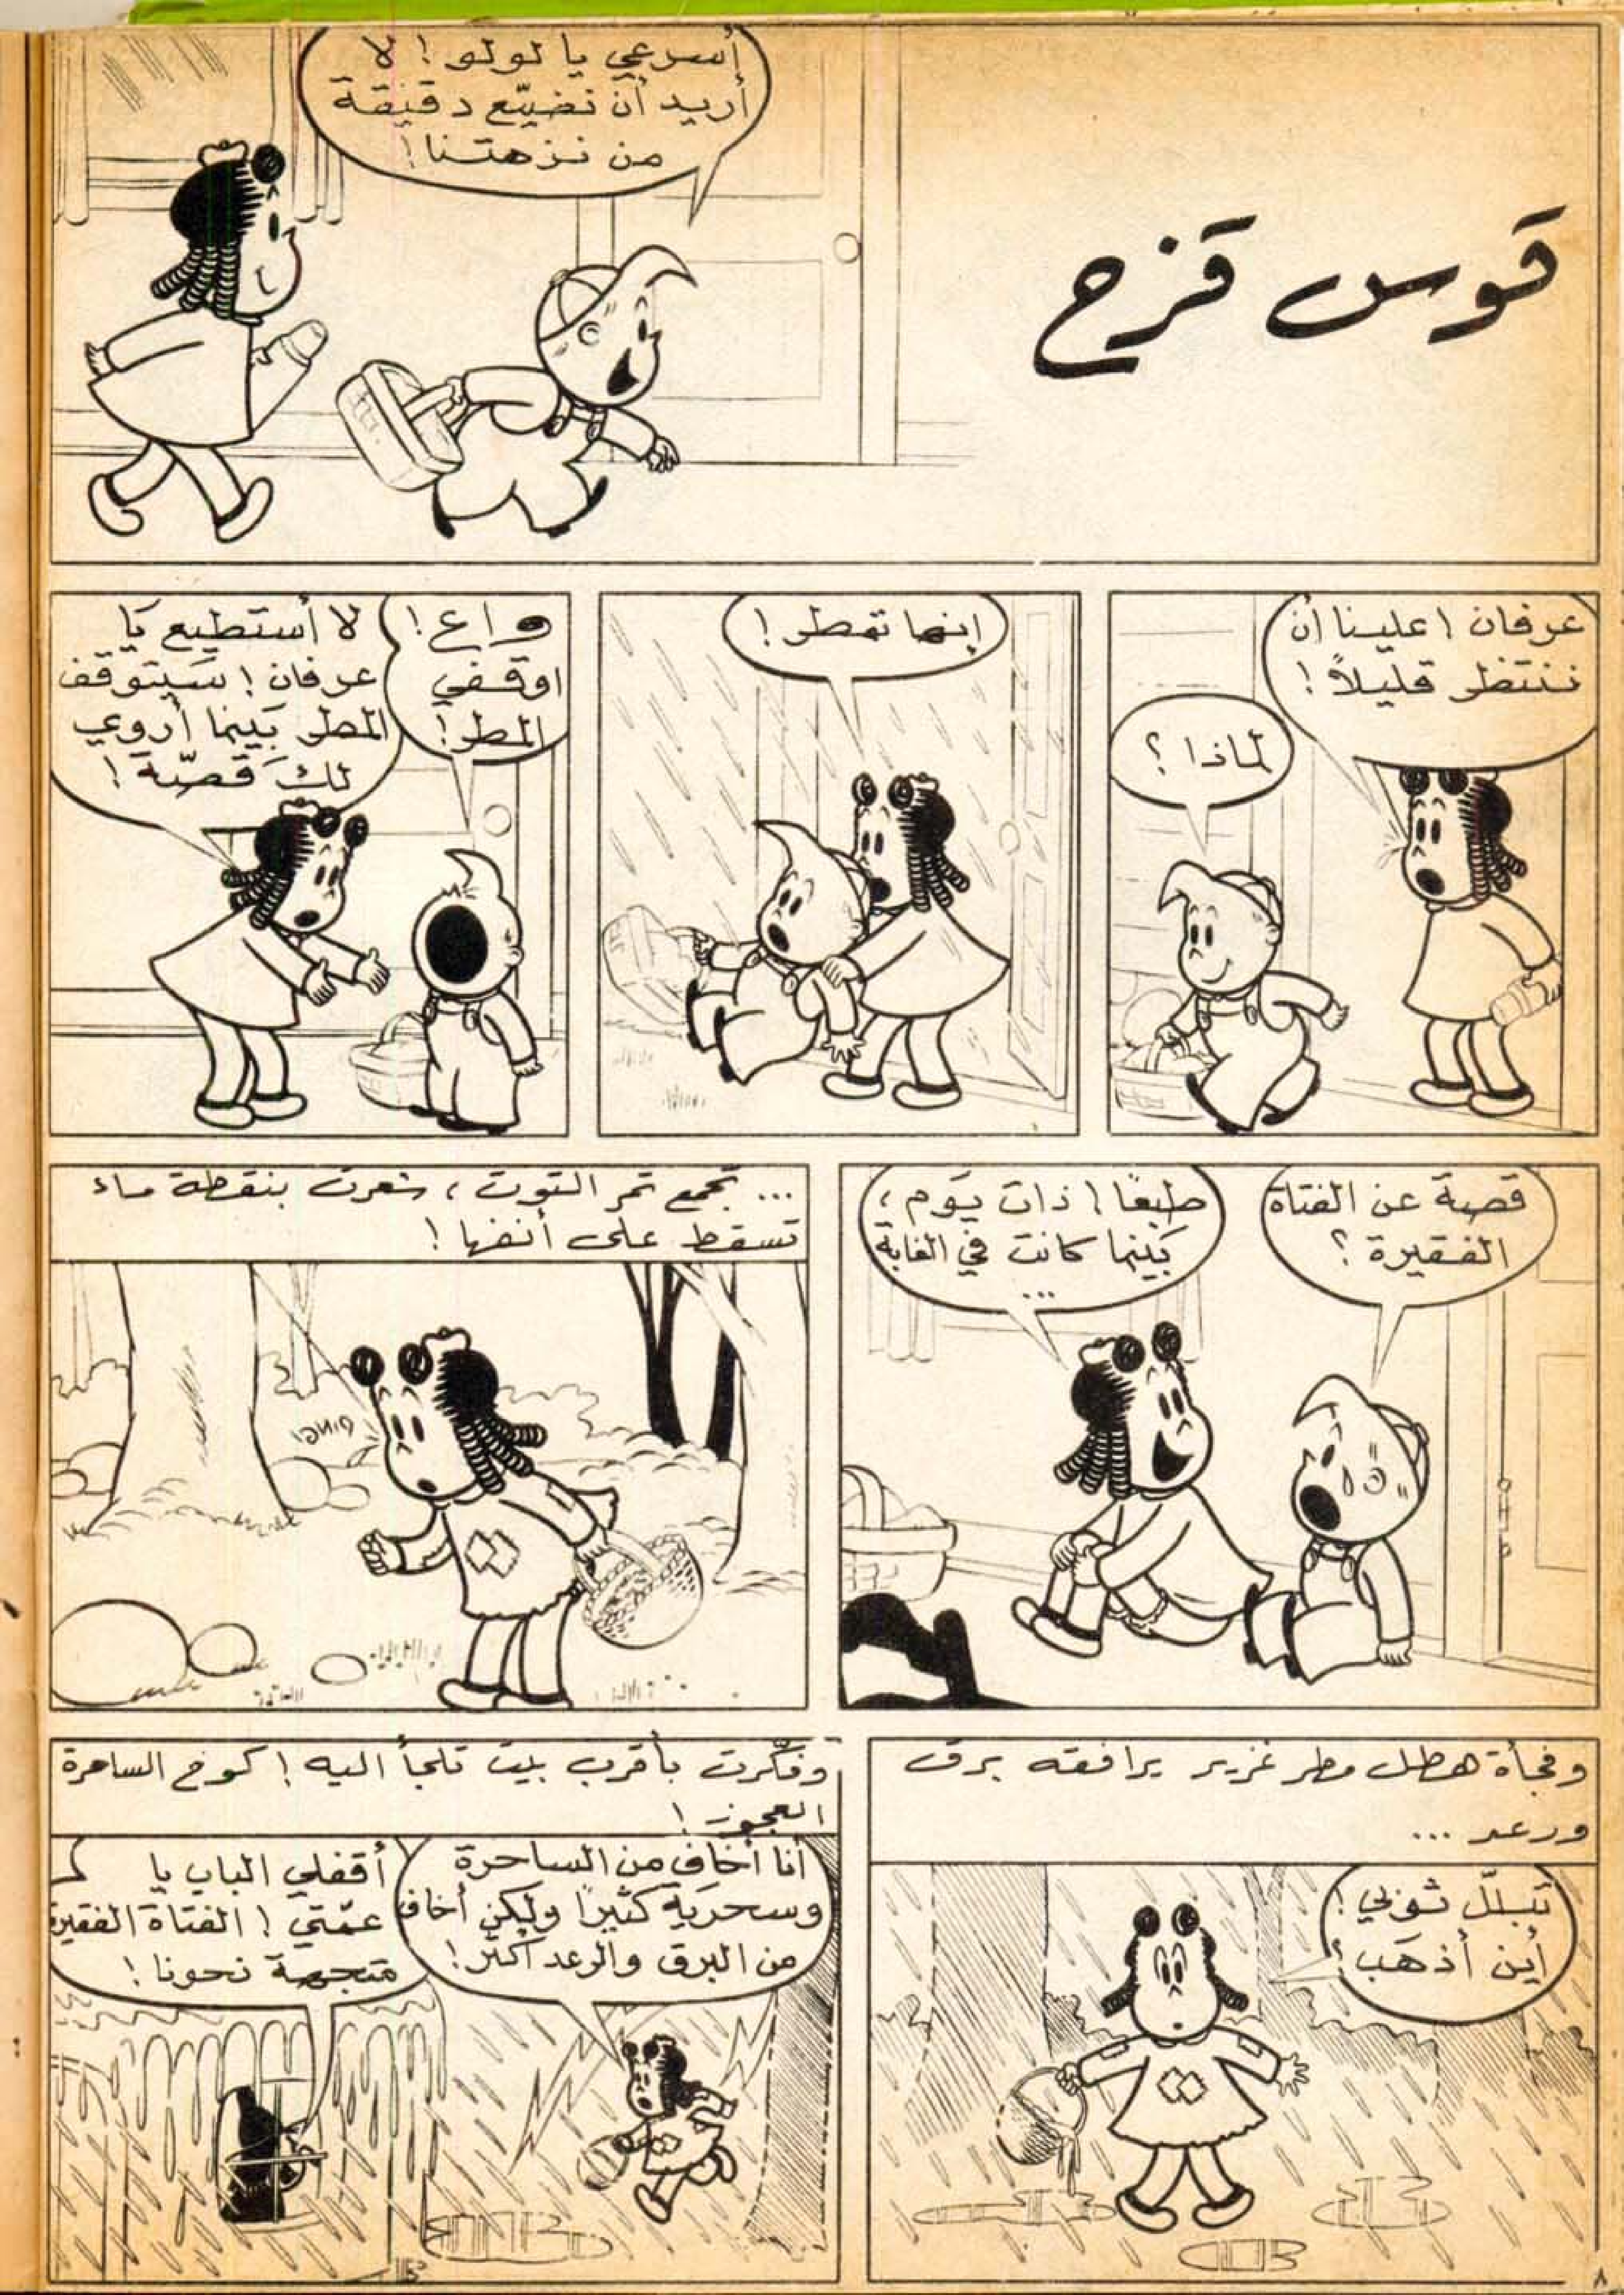 قوس قزح
أسرعي يا لولو! لا
أريد أن نضيّع دقيقة
من نزهتنا!
عرفان! علينا أن
ننتظر قليلاً!
لماذا؟
إنها تمطر!
واع!
اوقفي
المطر!
لا أستطيع يا
عرفان! سيتوقف
المطر بينما أروي
لك قصّة!
قصة عن الفتاة
الفقيرة؟
طبعًا! ذات يوم،
بينما كانت في الغابة
...
... تجمع ثمر التوت، شعرت بنقطة ماء
تسقط على أنفها!
DING!
وفجأة هطل مطر غزير يرافقه برق
ورعد ...
تبلّل ثوبي!
أين أذهب؟
وفكّرت بأقرب بيت تلجأ اليه! كوخ الساحرة
العجوز!
أنا أخاف من الساحرة
وسحرية كثيرًا ولكن أخاف
من البرق والرعد أكثر!
أقفلي الباب يا
عمّتي! الفتاة الفقيرة
متجهة نحونا!
٨